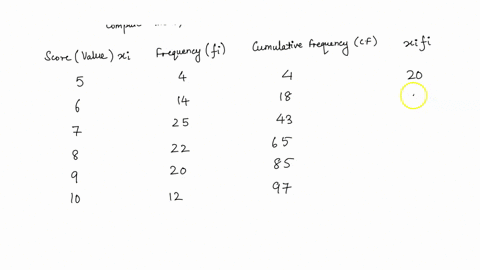 Score (Value) xi Frequency (fi) Cumulative Frequency (CF) xifi
5 4 4 20
6 14 18
7 25 43
8 22 65
9 20 85
10 12 97